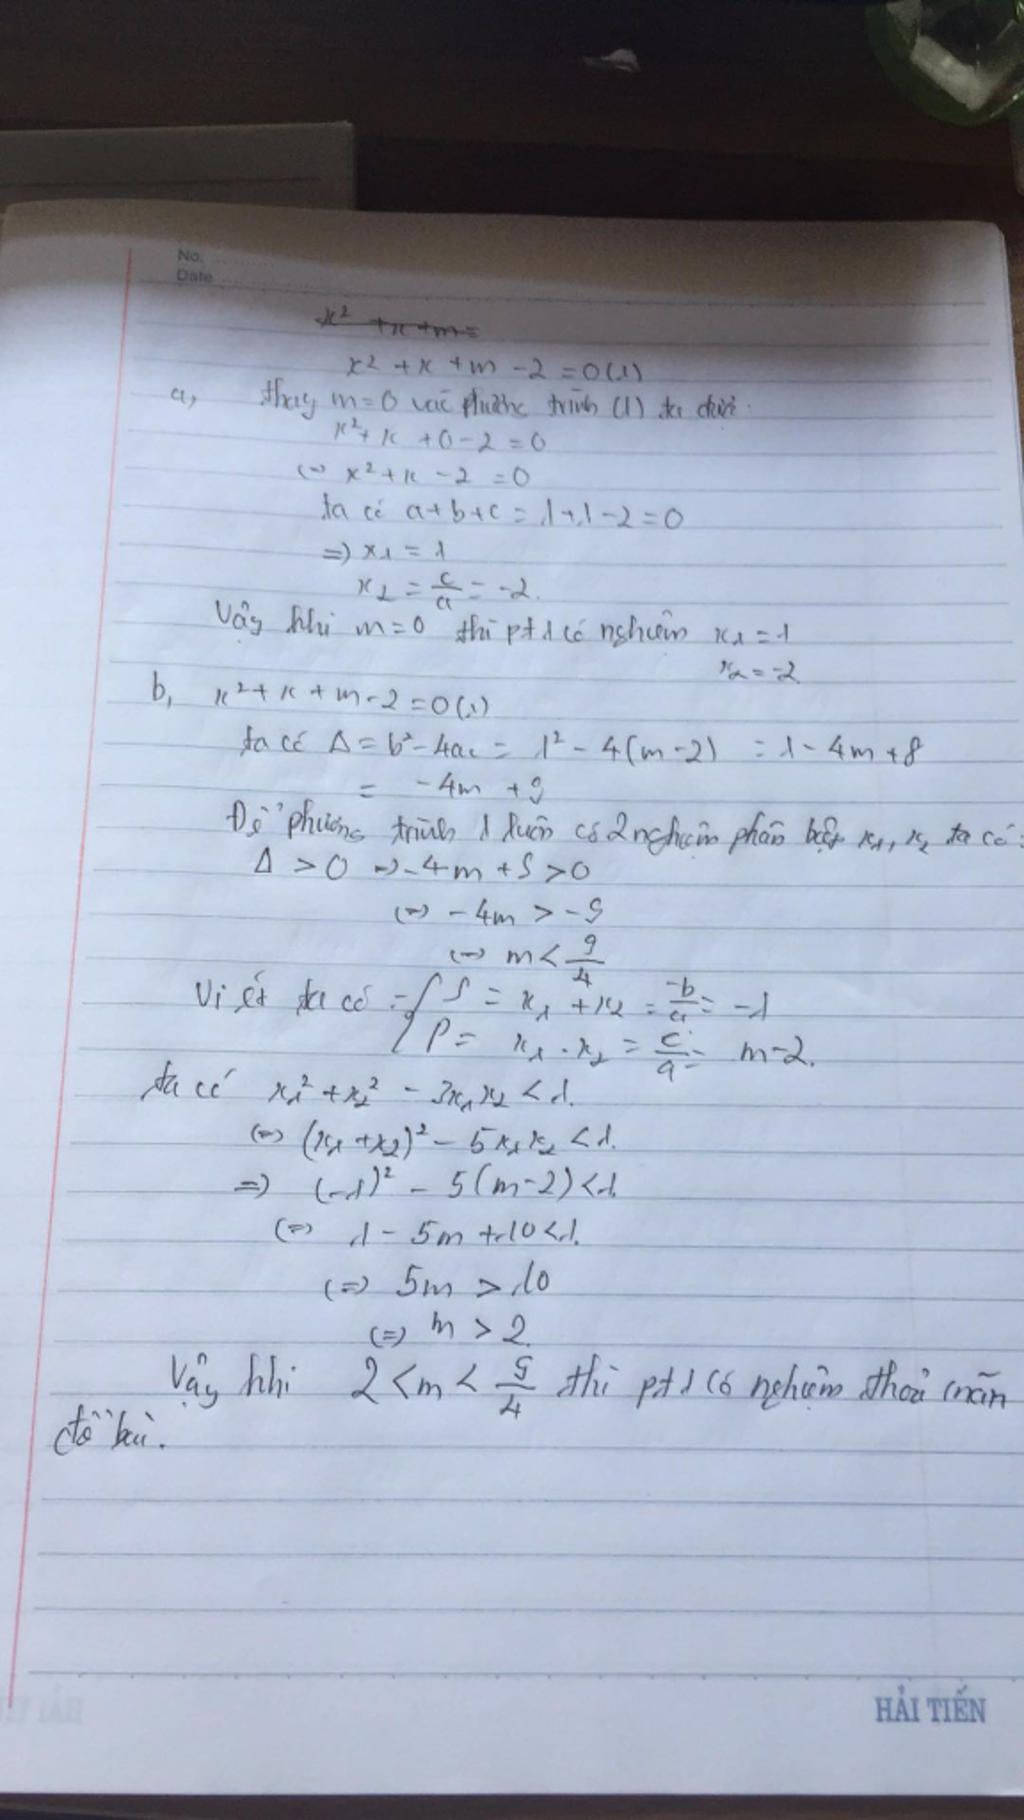 No.
Date
x² + x + m =
x² + x + m - 2 = 0 (1)
a, thay m = 0 vào phương trình (1) ta được:
x² + x + 0 - 2 = 0
(=) x² + x - 2 = 0
ta có a + b + c = 1 + 1 - 2 = 0
=) x₁ = 1
x₂ = c/a = -2.
Vậy khi m = 0 thì pt 1 có nghiệm x₁ = 1
x₂ = -2
b, x² + x + m - 2 = 0 (1)
ta có Δ = b² - 4ac = 1² - 4(m - 2) = 1 - 4m + 8
= -4m + 9
Để phương trình 1 luôn có 2 nghiệm phân biệt x₁, x₂ ta có:
Δ > 0 => -4m + 9 > 0
(=) -4m > -9
(=) m < 9/4
Vi ét ta có: { S = x₁ + x₂ = -b/a = -1
P = x₁ . x₂ = c/a = m - 2.
ta có x₁² + x₂² - 3x₁x₂ < 1.
(=) (x₁ + x₂)² - 5x₁x₂ < 1.
=) (-1)² - 5(m - 2) < 1.
(=) 1 - 5m + 10 < 1.
(=) 5m > 10
(=) m > 2.
Vậy khi 2 < m < 9/4 thì pt 1 có nghiệm thoả mãn
đề bài.
HẢI TIẾN